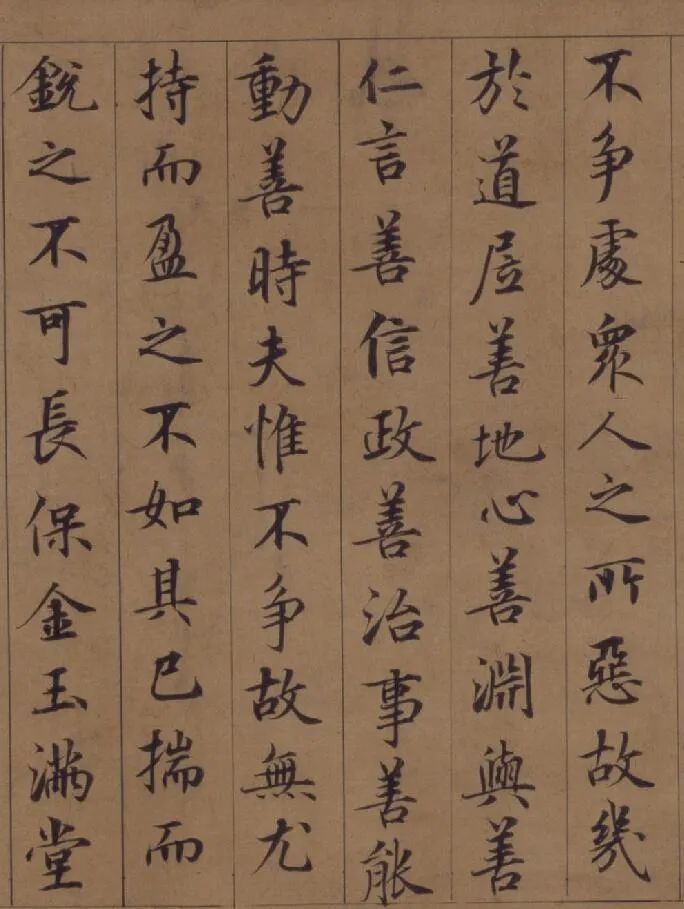 不争處衆人之所惡故幾
於道居善地心善淵與善
仁言善信政善治事善能
動善時夫惟不争故無尤
持而盈之不如其已揣而
銳之不可長保金玉滿堂